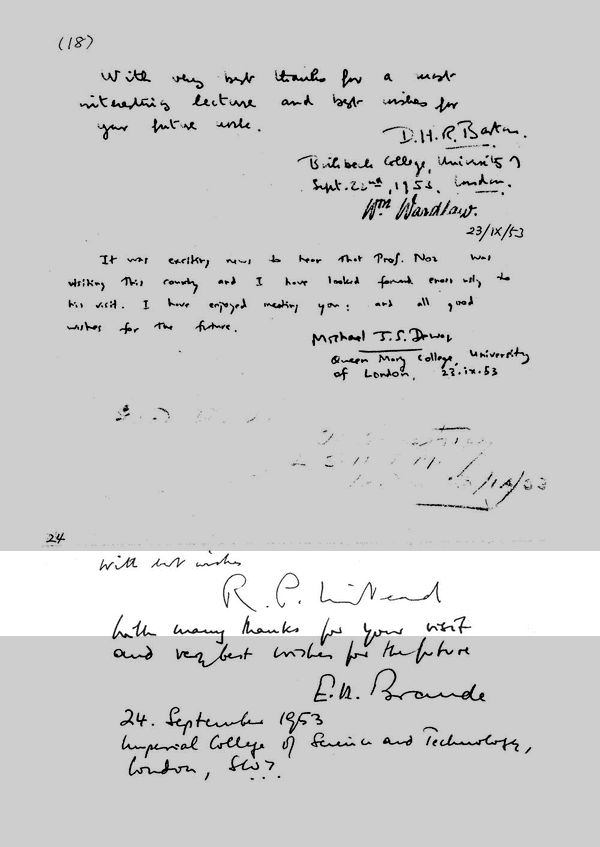 (18)
With very best thanks for a most
interesting lecture and best wishes for
your future work.
D.H.R. Barton.
Birkbeck College, University of
Sept. 22nd, 1953. London.
Wm Wardlaw.
23/IX/53
It was exciting news to hear that Prof. Noz was
visiting this country and I have looked forward enormously to
his visit. I have enjoyed meeting you; and all good
wishes for the future.
Michael J.S. Dewar
Queen Mary College, University
of London, 23.ix.53
24
With best wishes
R. P. Linstead
With many thanks for your visit
and very best wishes for the future
E.A. Braude
24. September 1953
Imperial College of Science and Technology,
London, SW7.